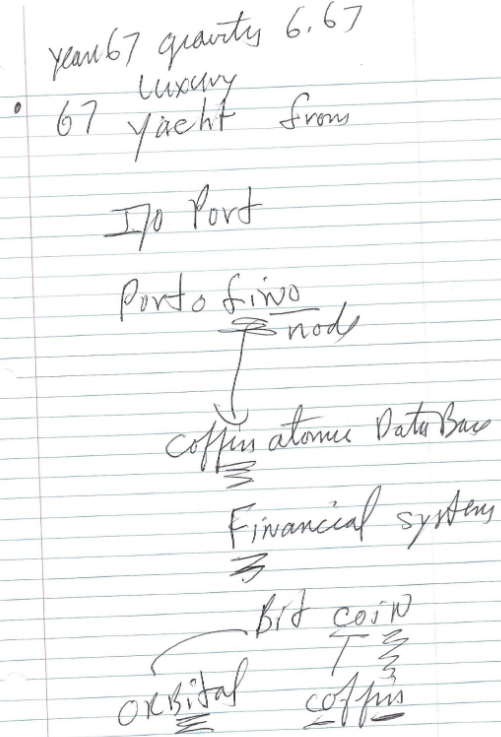 year 67 gravity 6.67
luxury
67 yacht from
I/O Port
Porto fino
node
coffin atomic Data Base
Financial system
Bit coin
ORBital coffin